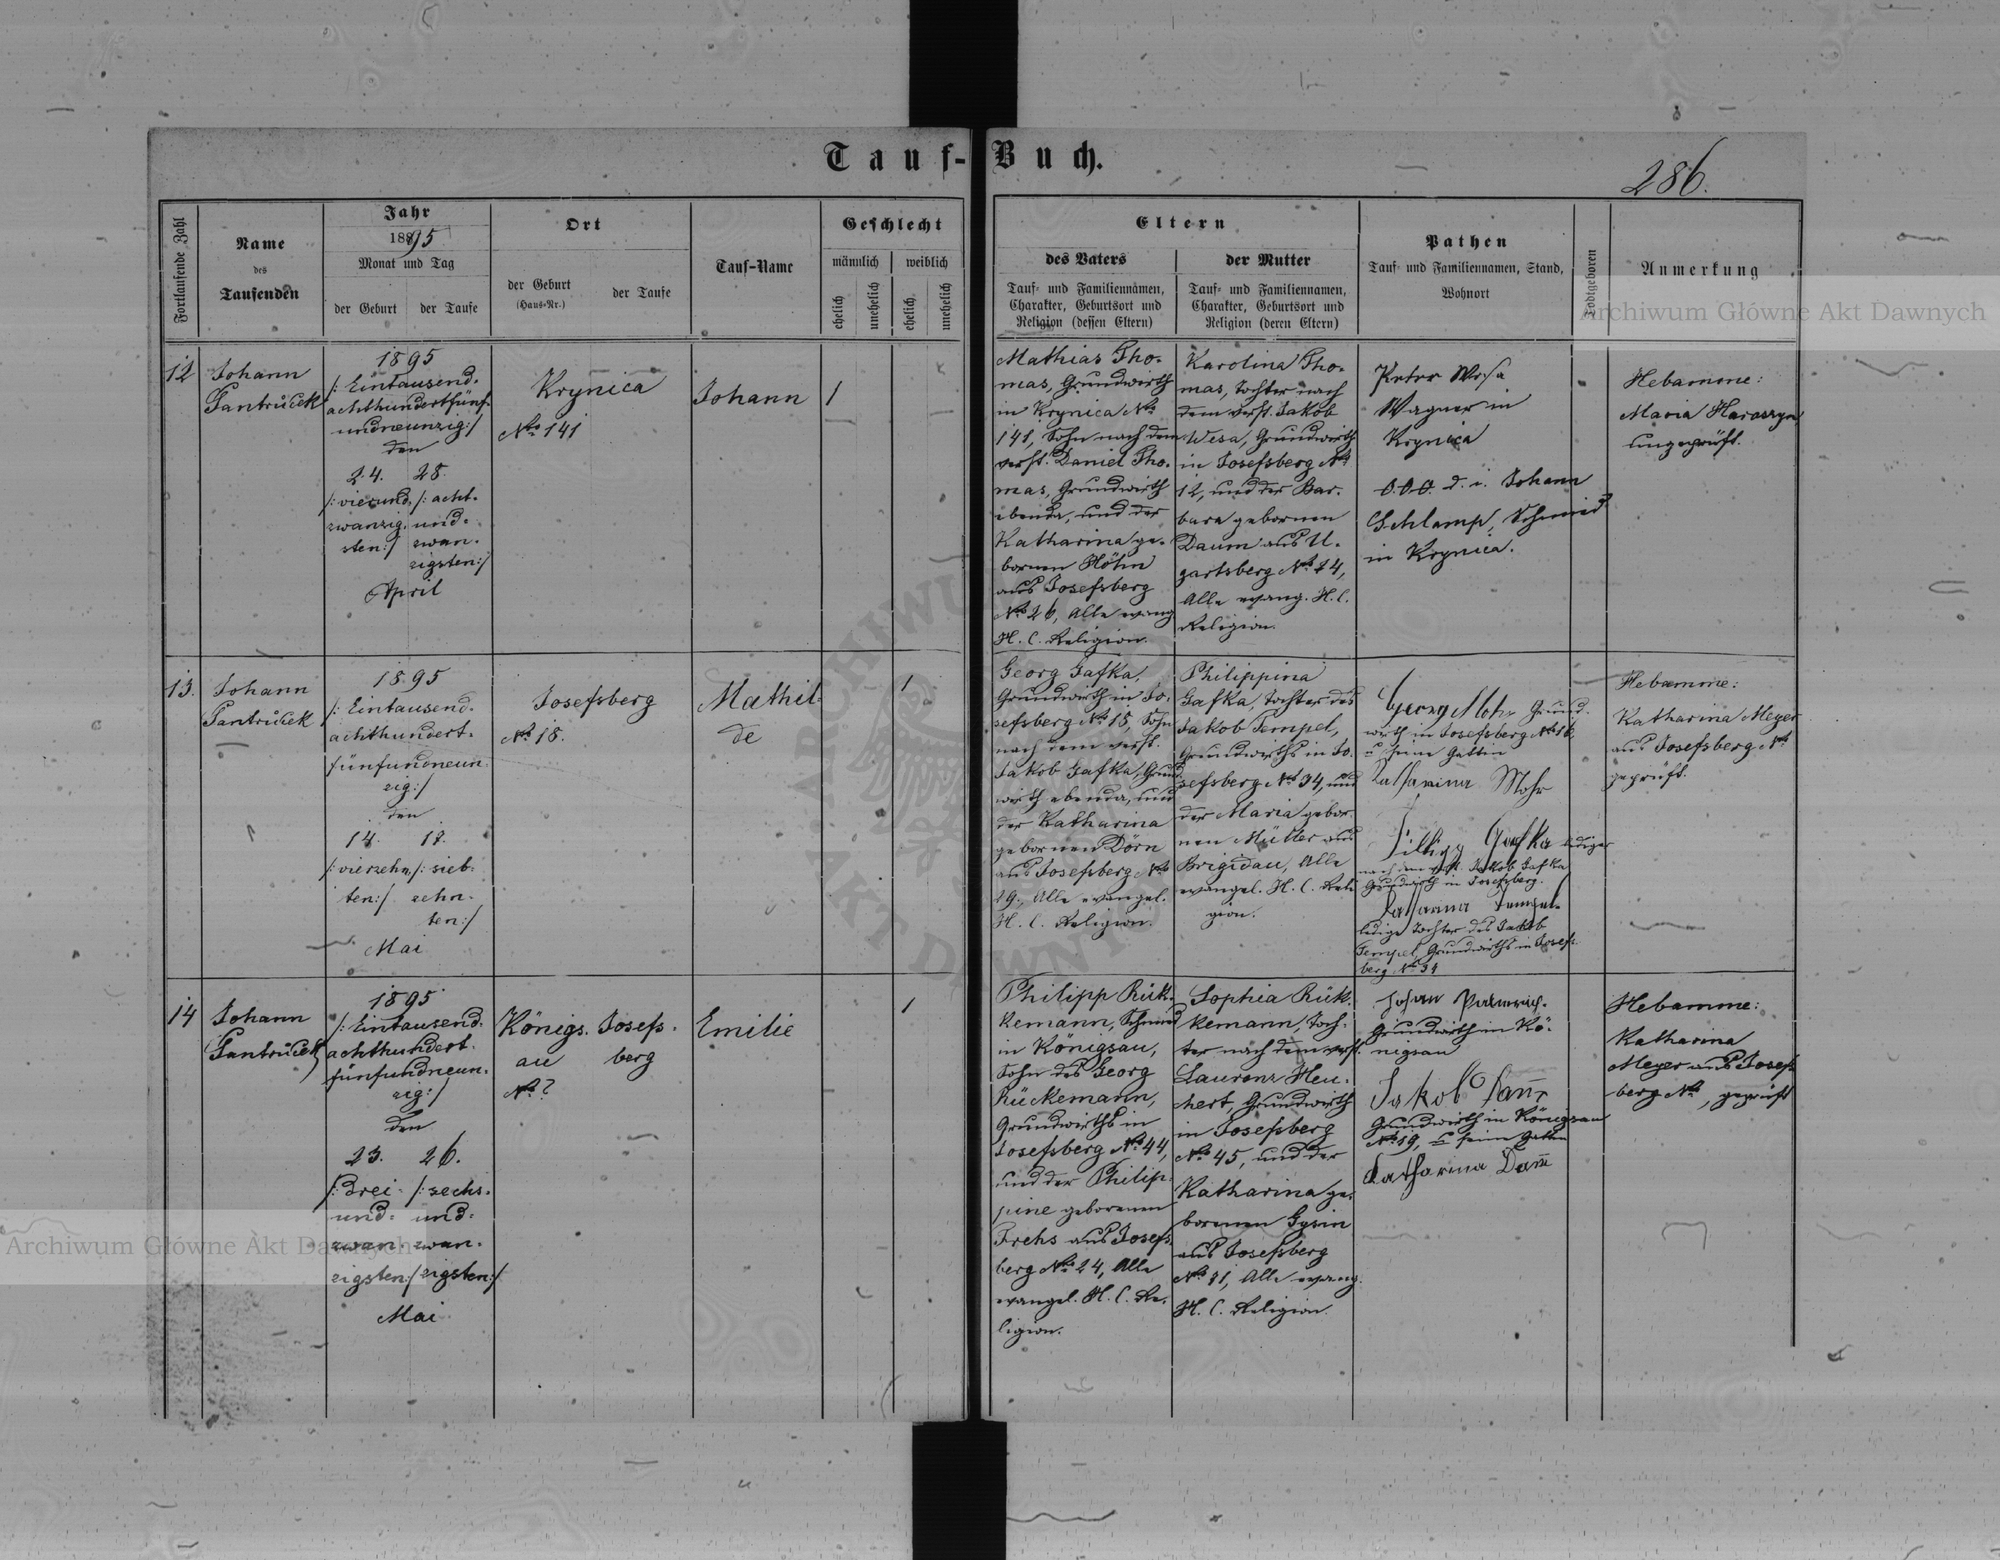 Tauf-Buch.
286.
Fortlaufende Zahl
Name
des
Taufenden
Jahr
1895
Monat und Tag
der Geburt
der Taufe
Ort
der Geburt
(Haus-Nr.)
der Taufe
Tauf-Name
Geschlecht
männlich
weiblich
ehelich
unehelich
ehelich
unehelich
Eltern
des Vaters
Tauf- und Familiennamen,
Charakter, Geburtsort und
Religion (dessen Eltern)
der Mutter
Tauf- und Familiennamen,
Charakter, Geburtsort und
Religion (deren Eltern)
Pathen
Tauf- und Familiennamen, Stand,
Wohnort
Todtgeboren
Anmerkung
12
Johann
Jantrůček
1895
/: Eintausend-
achthundertfünf-
undneunzig :/
den
24. 28.
/: vierund- /: acht-
zwanzig- und-
sten :/ zwan-
zigsten :/
April
Krynica
No 141
Johann
1
Mathias Tho-
mas, Grundwirth
in Krynica No
141, Sohn nach dem
verst. Daniel Tho-
mas, Grundwirth
ebenda, und der
Katharina ge-
bornen Höhn
aus Josefsberg
No 26, Alle evang.
H. C. Religion.
Karolina Tho-
mas, Tochter nach
dem verst. Jakob
Wesa, Grundwirth
in Josefsberg No
12, und der Bar-
bara gebornen
Daum aus U-
gartsberg No 14,
Alle evang. H. C.
Religion.
Peter Wesa
Wagner in
Krynica
O.O.O. d. i. Johann
Schlamp, Schmied
in Krynica.
Hebamme:
Maria Haraszyn
ungeprüft.
13.
Johann
Jantrůček
1895
/: Eintausend-
achthundert-
fünfundneun-
zig :/
den
14. 17.
/: vierzehn- /: sieb-
ten :/ zehn-
ten :/
Mai
Josefsberg
No 18.
Mathil-
de
1
Georg Gafka,
Grundwirth in Jo-
sefsberg No 18, Sohn
nach dem verst.
Jakob Gafka, Grund-
wirth ebenda, und
der Katharina
gebornen Dörn
aus Josefsberg No
19., Alle evangel.
H. C. Religion.
Philippina
Gafka, Tochter des
Jakob Tempel,
Grundwirths in Jo-
sefsberg No 34, und
der Maria gebor-
nen Müller aus
Brigidau, Alle
evangel. H. C. Reli-
gion.
Georg Mohr Grund-
wirth in Josefsberg No 16,
u seine Gattin
Katharina Mohr
Filipp Gafka lediger
nach dem verst. Jakob Gafka
Grundwirth in Josefsberg.
Katharina Tempel
ledige Tochter des Jakob
Tempel, Grundwirths in Josefs-
berg No 34
Hebamme:
Katharina Meyer
aus Josefsberg No
geprüft.
14
Johann
Jantrůček
1895
/: Eintausend-
achthundert-
fünfundneun-
zig :/
den
23. 26.
/: Drei- /: sechs-
und- und-
zwan- zwan-
zigsten :/ zigsten :/
Mai
Königs- Josefs-
au berg
No ?
Emilie
1
Philipp Rük-
kemann, Schmied
in Königsau,
Sohn des Georg
Rückemann,
Grundwirths in
Josefsberg No 44,
und der Philip-
pine geborenen
Frehs aus Josefs-
berg No 24, Alle
evangel. H. C. Re-
ligion.
Sophia Rük-
kemann, Toch-
ter nach dem verst.
Laurenz Heu-
chert, Grundwirth
in Josefsberg
No 45, und der
Katharina ge-
borenen Gysin
aus Josefsberg
No 31, Alle evang.
H. C. Religion.
Johan
Grundwirth in Kö-
nigsau
Jakob Dam̅
Grundwirth in Königsau
No 19, u seine Gattin
Katharina Dam̅
Hebamme:
Katharina
Meyer aus Josefs-
berg No , geprüft
Archiwum Główne Akt Dawnych
Archiwum Główne Akt Dawnych
ARCHIWUM
AKT DAWNYCH